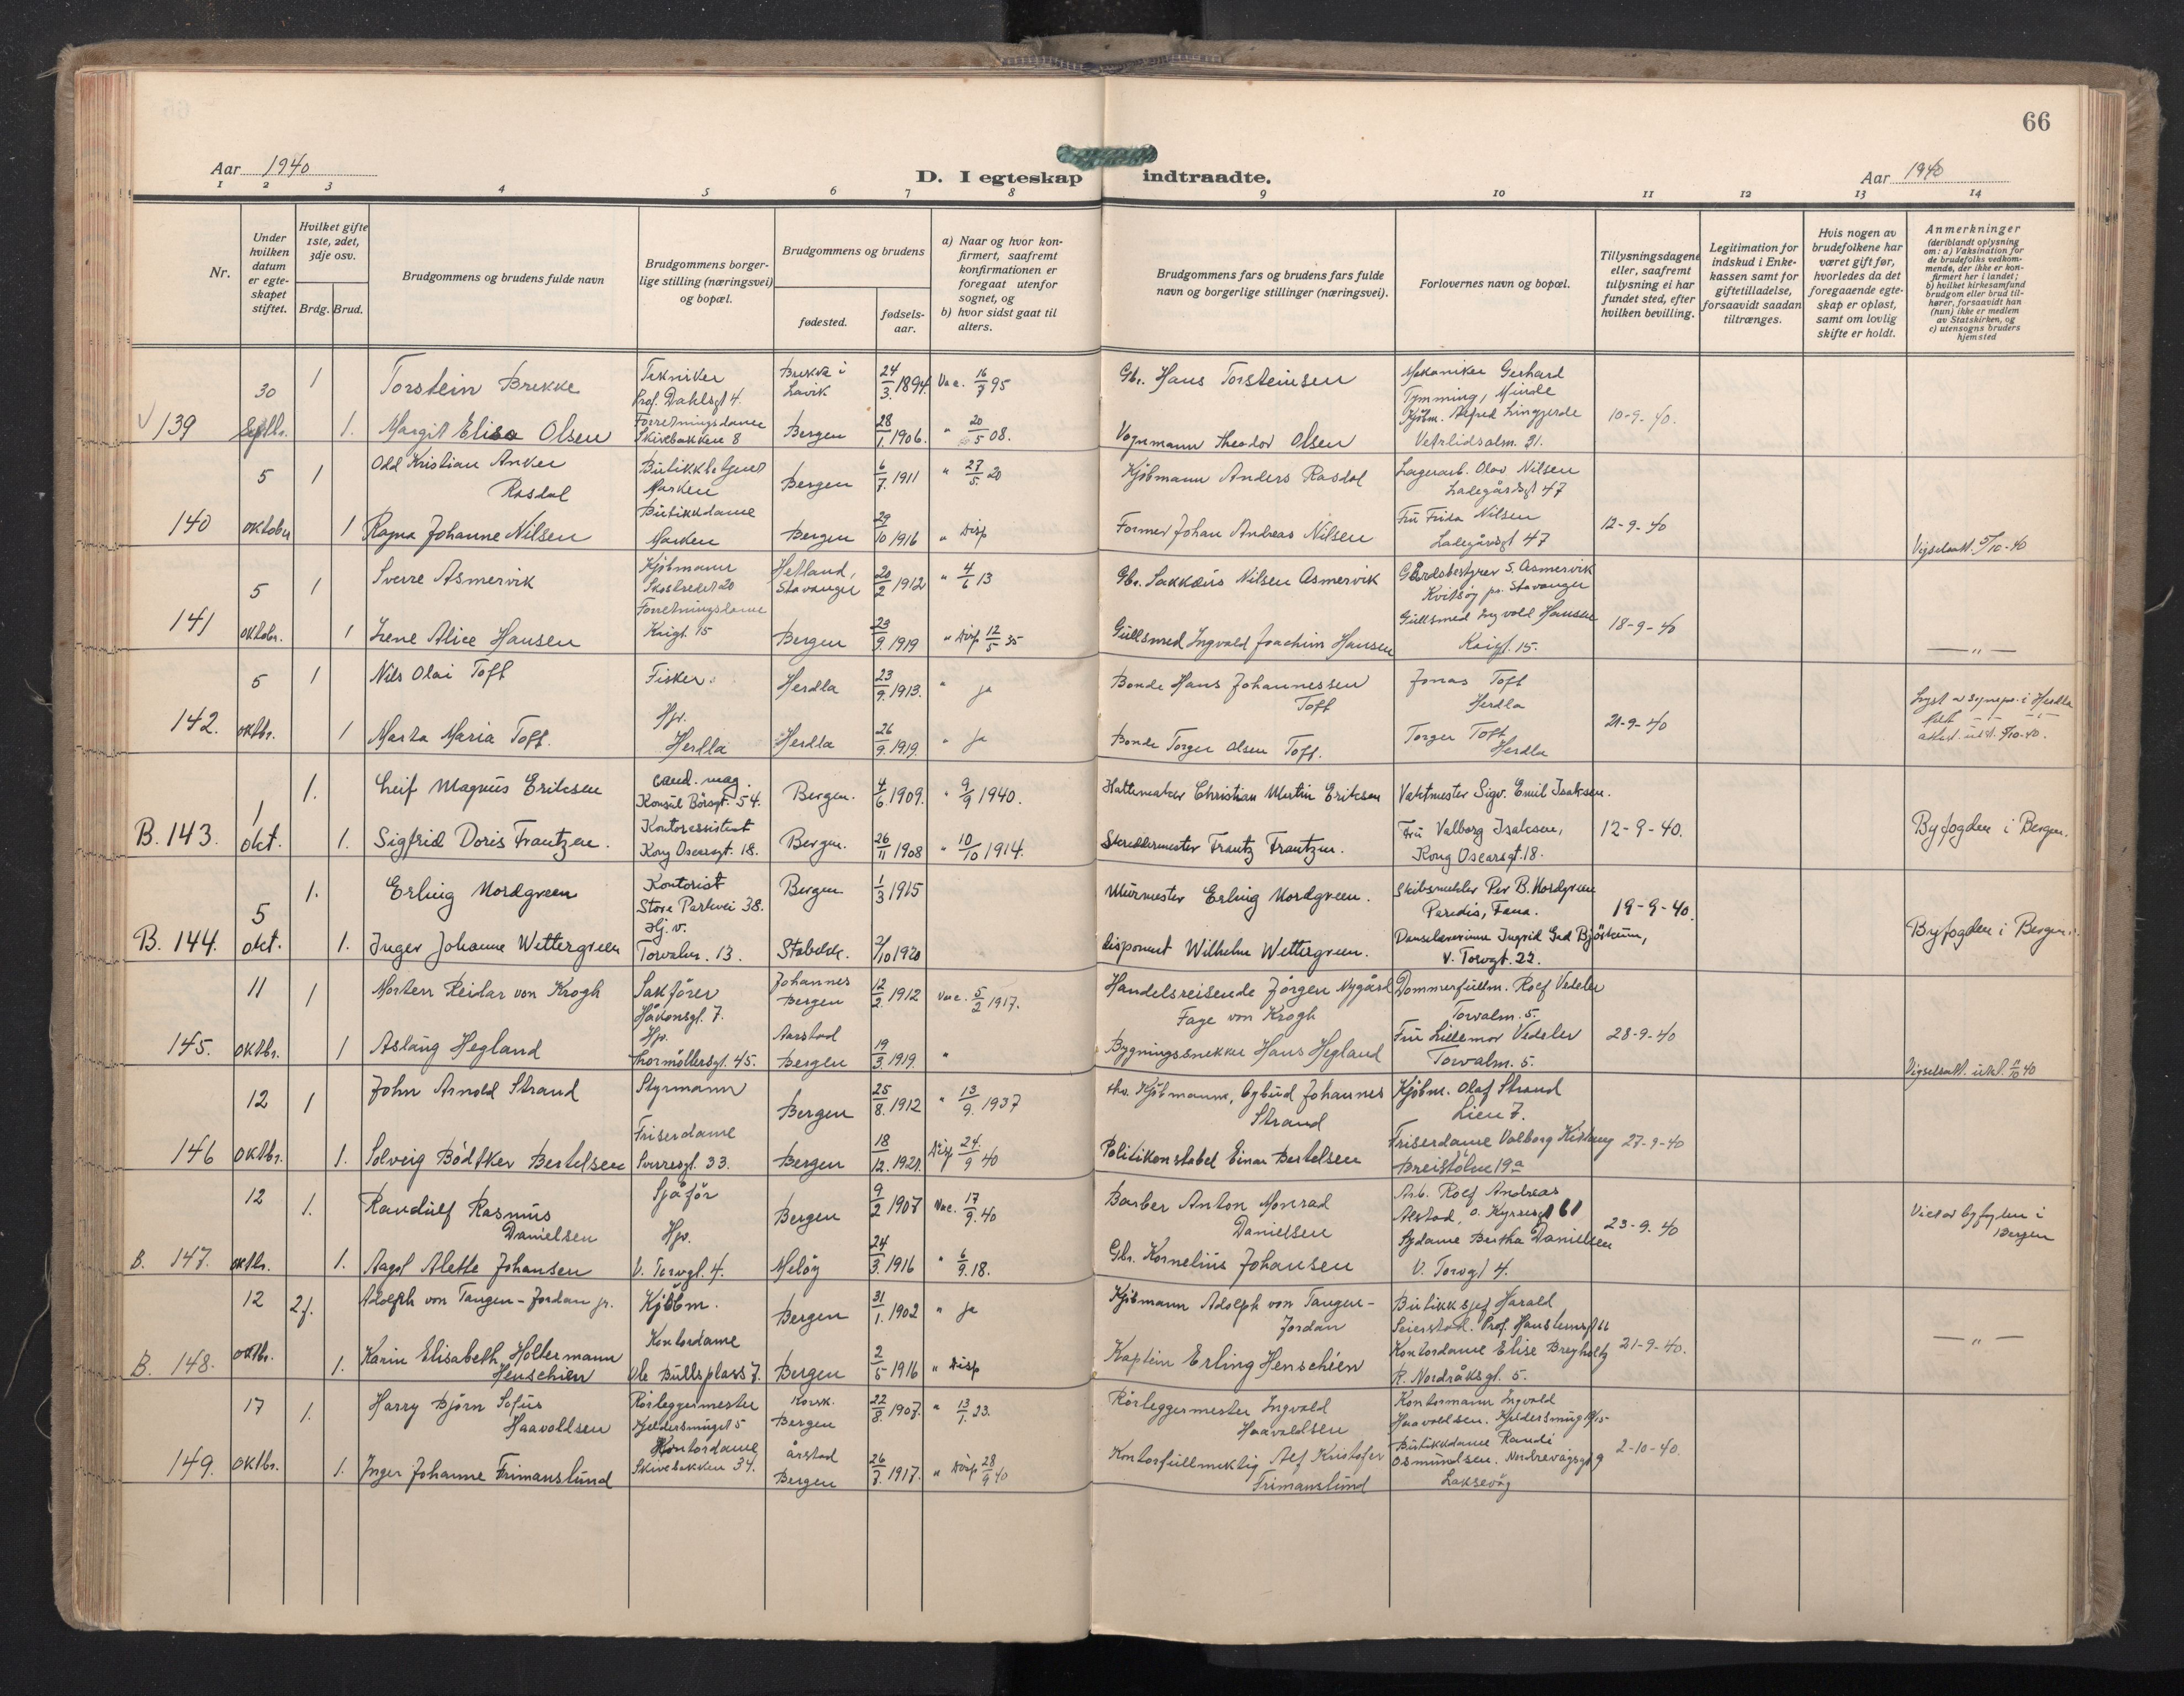 66
Aar 1940
D. I egteskap indtraadte.
Aar 1940
1 2 3 4 5 6 7 8 9 10 11 12 13 14
Nr.
Under hvilken datum er egteskapet stiftet.
Hvilket gifte 1ste, 2det, 3dje osv.
Brdg. Brud.
Brudgommens og brudens fulde navn
Brudgommens borgerlige stilling (næringsvei) og bopæl.
Brudgommens og brudens
fødested.
fødselsaar.
a) Naar og hvor konfirmert, saafremt konfirmationen er foregaat utenfor sognet, og
b) hvor sidst gaat til alters.
Brudgommens fars og brudens fars fulde navn og borgerlige stillinger (næringsvei).
Forlovernes navn og bopæl.
Tillysningsdagene eller, saafremt tillysning ei har fundet sted, efter hvilken bevilling.
Legitimation for indskud i Enkekassen samt for giftetilladelse, forsaavidt saadan tiltrænges.
Hvis nogen av brudefolkene har været gift før, hvorledes da det foregaaende egteskap er opløst, samt om lovlig skifte er holdt.
Anmerkninger
(deriblandt oplysning om: a) Vaksination for de brudefolks vedkommende, der ikke er konfirmert her i landet;
b) hvilket kirkesamfund brudgom eller brud tilhører, forsaavidt han (hun) ikke er medlem av Statskirken, og
c) utensogns bruders hjemsted
139 30 Septbr.
1 Torstein Brekke Tekniker Prof. Dahlsgt 4. Brekke i Lavik 24/3 1894 Vac. 16/7 95 Gbr. Hans Torsteinsen Mekaniker Gerhard Tymming, Minde
1. Margit Elisa Olsen Forretningsdame Skivebakken 8 Bergen 28/1 1906. " 20/5 08. Vognmann Theodor Olsen Kjøbm. Alfred Lingjerde Vetrlidsalm. 21. 10-9-40.
140 5 oktober
1 Odd Kristian Anker Rasdal Butikkbetjent Marken Bergen 6/7 1911 " 27/5 20 Kjöbmann Anders Rasdal Lagerarb. Olav Nilsen Ladegårdsgt 47
1 Ragna Johanne Nilsen Butikkdame Marken Bergen 29/10 1916 " Disp Former Johan Andreas Nilsen Frü Frida Nilsen Ladegårdsgt 47 12-9-40 Vigselsatt. 5/10-40
141 5 oktobr.
1 Sverre Asmervik Kjöbmann Skostredet 20 Hetland, Stavanger 20/2 1912 " 4/6 13 Gbr. Sakkæus Nilsen Asmervik Gårdsbestyrer S. Asmervik Kvitsöy pr. Stavanger
1 Irene Alice Hansen Forretningsdame Krigt. 15 Bergen 23/9 1919 " Disp 12/5 35 Gullsmed Ingvald Joachim Hansen Gullsmed Ingvald Hansen Kaigt. 15. 18-9-40 — " —
142. 5 oktbr.
1 Nils Olai Toft Fisker. Herdla 23/9 1913. " ja Bonde Hans Johannessen Toft Jonas Toft Herdla
1 Marta Maria Toft. Hjv. Herdla Herdla 26/9 1919. " ja Bonde Torger Olsen Toft. Torger Toft Herdla 21-9-40 Lyst av sognepr. i Herdla
B. 143. 1 okt.
1. Leif Magnus Eriksen cand. mag. Konsul Börsgt. 54. Bergen. 4/6 1909. " 9/9 1940. Hattemaker Christian Martin Eriksen Vaktmester Sigv. Emil Isaksen.
1. Sigfrid Doris Frantzen. Kontorassistent Kong Oscarsgt. 18. Bergen. 26/11 1908 " 10/10 1914. Skreddermester Frantz Frantzen. Frü Valborg Isaksen, Kong Oscarsgt. 18. 12-9-40. Byfogden i Bergen.
B. 144. 5 okt.
1. Erling Nordgreen Kontorist Store Parkvei 38. Bergen 1/3 1915 Murmester Erling Nordgreen. Skibsmekler Per B. Nordgreen Paradis, Fana.
1. Inger Johanne Wettergreen Hj. v. Torvalm. 13. Stabekk. 2/10 1920 disponent Wilhelm Wettergreen. Danselærerinne Ingrid Grd Björkum, V. Torvgt. 22. 19-9-40. Byfogden i Bergen.
145. 11 oktbr.
1 Morten Reidar von Krogh Sakförer Håkonsgt. 7. Johannes Bergen 12/2 1912 Vac. 5/2 1917. Handelsreisende Jörgen Nygård Faye von Krogh Dommerfullm. Rolf Vedeler Torvalm. 5.
1 Aslaug Hegland Hjv. Thormöllersgt. 45. Aarstad Bergen 19/3 1919. " Bygningssnekker Hans Hegland Frü Lillemor Vedeler Torvalm. 5. 28-9-40 Vigselsatt. utst.
146 12 oktbr.
1 John Arnold Strand Styrmann Bergen 25/8 1912 " 13/9. 1937 Kjöbmann, bybud Johannes Strand Kjöbm. Olaf Strand Lien 7.
1. Solveig Bödtker Bertelsen Friserdame Sverresgt. 33. Bergen 18/12. 1921. Disp 24/9 40 Politikonstabel Einar Bertelsen Friserdame Valborg Breistölen 19a 27-9-40
B. 147. 12 oktbr.
1. Randulf Rasmus Danielsen Sjåför Bergen 9/2 1907 Vac. 17/9. 40 Barber Anton Monrad Danielsen Arb. Rolf Andreas Alstad, O. Kyrresgt 61
1. Aagot Alette Johansen Hjv. V. Torvgt. 4. Melöy 24/3 1916 " 6/9. 18. Gbr. Kornelius Johansen Sydame Bertha Danielsen V. Torvgt 4. 23-9-40 Viet av byfogden i Bergen
B. 148. 12 oktbr.
2.f. Adolph von Tangen-Jordan jr. Kjöbm. Bergen 31/1. 1902 " ja Kjöbmann Adolph von Tangen-Jordan Butikksjef Harald Seierstad. Prof. Hansteensgt 66
1. Karin Elisabeth Holtermann Henschien Kontordame Ole Bullsplass 7. Bergen 2/5 1916 " Disp Kaptein Erling Henschien Kontordame Elise Breyholtz R. Nordråksgt. 5. 21-9-40. — " —
149. 17 oktbr.
1. Harry Björn Sofus Haavoldsen Rörleggermester Kjeldersmuget 5 Korsk. Bergen 22/8. 1907. " 13/1. 23. Rörleggermester Ingvald Haavoldsen Kontormann Ingvald Haavoldsen.
1. Inger Johanne Frimanslund Kontordame Skivebakken 34. årstad Bergen 26/7. 1917. " Disp 28/9 40 Kontorfullmektig Alf Kristofer Frimanslund Butikkdame Randi Osmundsen. Laksevåg 2-10-40.